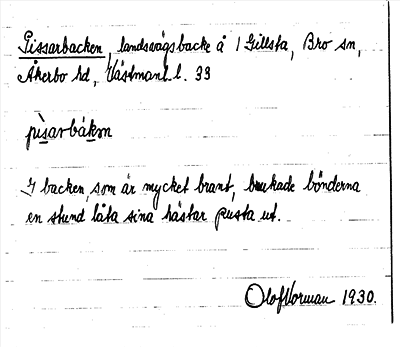 Pissarbacken, landsvägsbacke å 1 Gillsta, Bro sn,
Åkerbo hd, Västmanl. l. 33
pìsarbákən
I backen, som är mycket brant, brukade bönderna
en stund låta sina hästar pusta ut.
Olof Norman 1930.